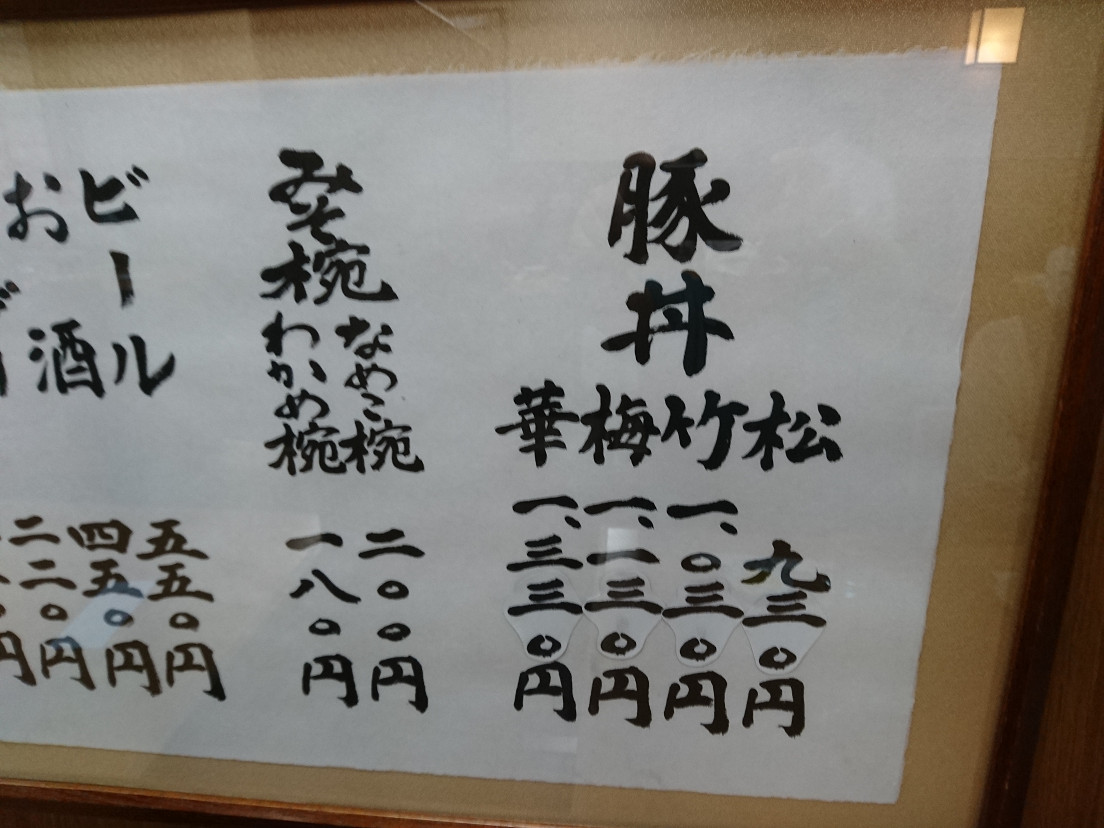 豚丼
松 九三〇円
竹 一、〇三〇円
梅 一、一三〇円
華 一、三三〇円
みそ椀
なめこ椀 二〇〇円
わかめ椀 一八〇円
ビール 五五〇円
酒 四五〇円
お
二二〇円